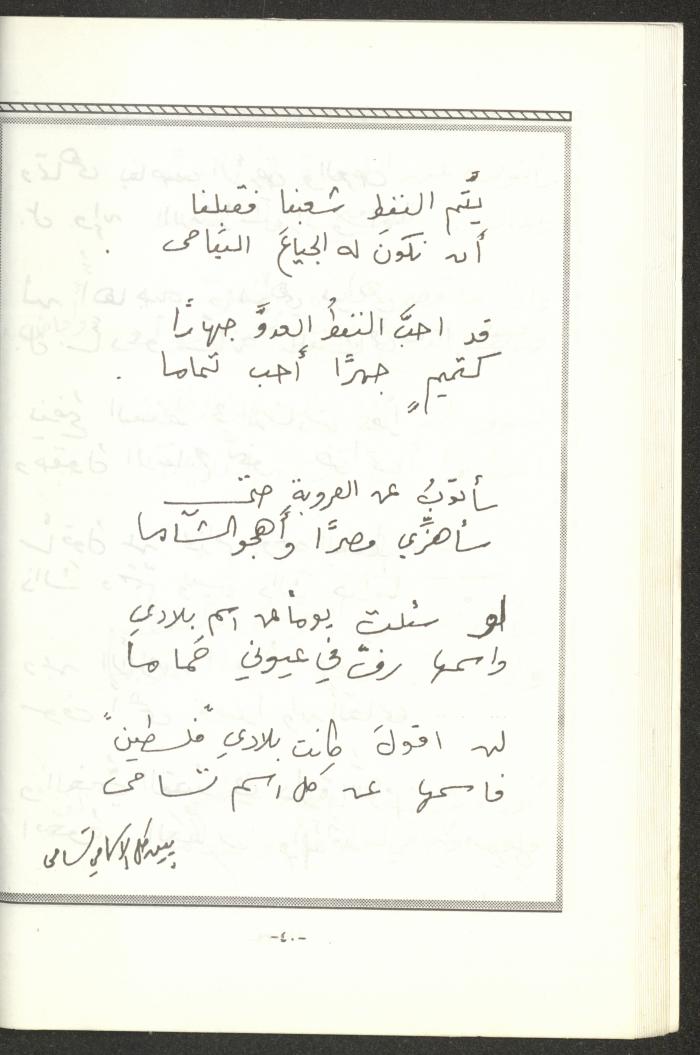 يُتِّم النفطِ شعبنا فقبلنا
أن نكونَ له الجياعَ اليتامى .
قد احبَّ النفطُ العدوَّ جهارًا
كتميمٍ جهرًا أحب تماما .
سأتوبُ عن العروبةِ حتى
سأهزِّي مصرًا وأهجو الشآما
لو سئلت يوماً عن اسم بلادي
واسمها رفّ في عيوني حَماما
لن اقولَ كانت بلادي "فلسطين"
فاسمها عن كل اسم تسامى
بين كل الاسامي تسامى
-٤٠-